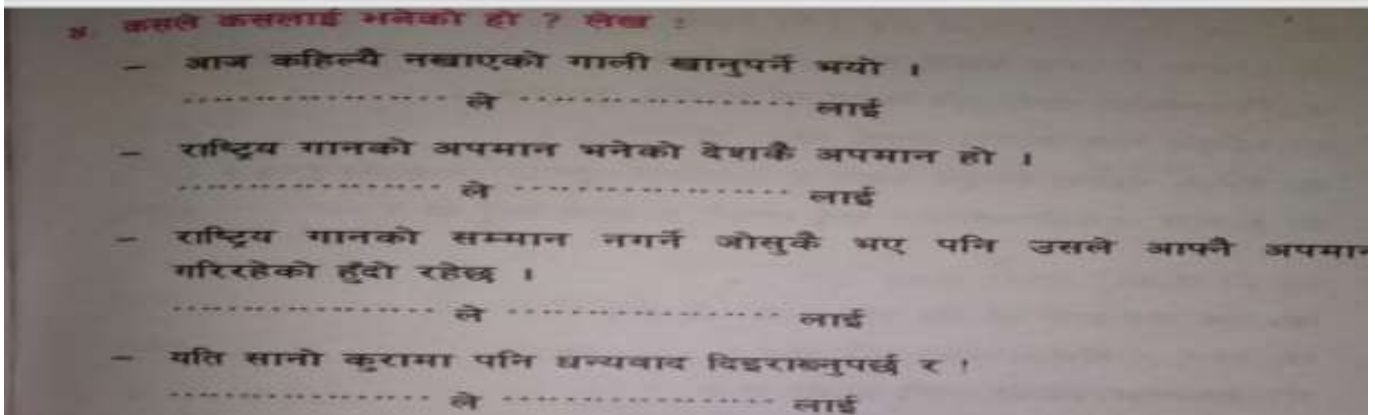 ४. कसले कसलाई भनेको हो ? लेख :
– आज कहिल्यै नखाएको गाली खानुपर्ने भयो ।
.................. ले ................... लाई
– राष्ट्रिय गानको अपमान भनेको देशकै अपमान हो ।
.................. ले ................... लाई
– राष्ट्रिय गानको सम्मान नगर्ने जोसुकै भए पनि उसले आफ्नै अपमान
गरिरहेको हुँदो रहेछ ।
.................. ले ................... लाई
– यति सानो कुरामा पनि धन्यवाद दिइराख्नुपर्छ र !
.................. ले ................... लाई